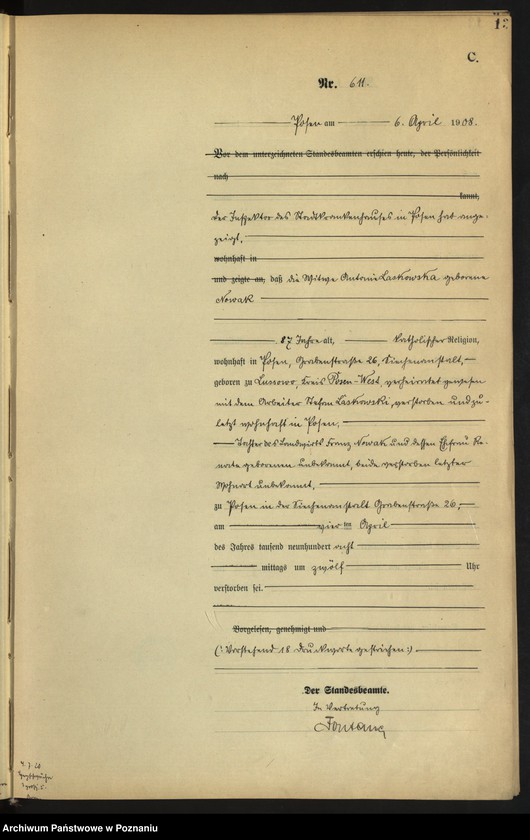 C.
Nr. 611.
Posen am 6. April 1908.
Vor dem unterzeichneten Standesbeamten erschien heute, der Persönlichkeit
nach
kannt,
der Inspektor des Stadtkrankenhauses in Posen hat ange-
zeigt,
wohnhaft in
und zeigte an, daß die Witwe Antonie Laskowska geborene
Nowak
87 Jahre alt, katholischer Religion,
wohnhaft in Posen, Grabenstraße 26, Siechenanstalt,
geboren zu Lussowo, Kreis Posen-West, verheiratet gewesen
mit dem Arbeiter Stefan Laskowski, verstorben und zu-
letzt wohnhaft in Posen,
Tochter des Landwirts Franz Nowak und dessen Ehefrau Re-
nate geborenen unbekannt, beide verstorben letzter
Wohnort unbekannt,
zu Posen in der Siechenanstalt Grabenstraße 26,
am vier ten April
des Jahres tausend neunhundert acht
mittags um zwölf Uhr
verstorben sei.
Vorgelesen, genehmigt und
(: Vorstehend 18 Druckworte gestrichen :)
Der Standesbeamte.
In Vertretung
Fontane
Archiwum Państwowe w Poznaniu